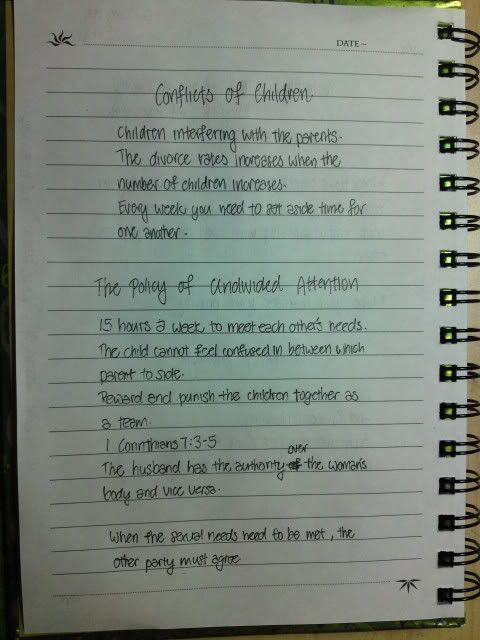 DATE~
Conflicts of Children
Children interfering with the parents.
The divorce rates increases when the
number of children increases.
Every week you need to set aside time for
one another.
The Policy of Undivided Attention
15 hours a week to meet each other's needs.
The child cannot feel confused in between which
parent to side.
Reward and punish the children together as
a team.
1 Corinthians 7:3-5
The husband has the authority over the woman's
body and vice versa.
When the sexual needs need to be met, the
other party must agree